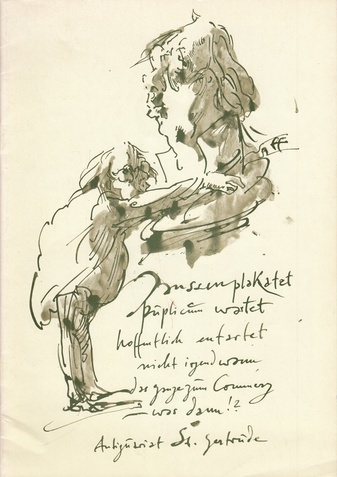 Jmssenplakatet
püplicům wartet
hoffentlich entartet
nicht irgendwann
das ganze zum Commerz
– was dann!?
Antiquariat St. Gertrude